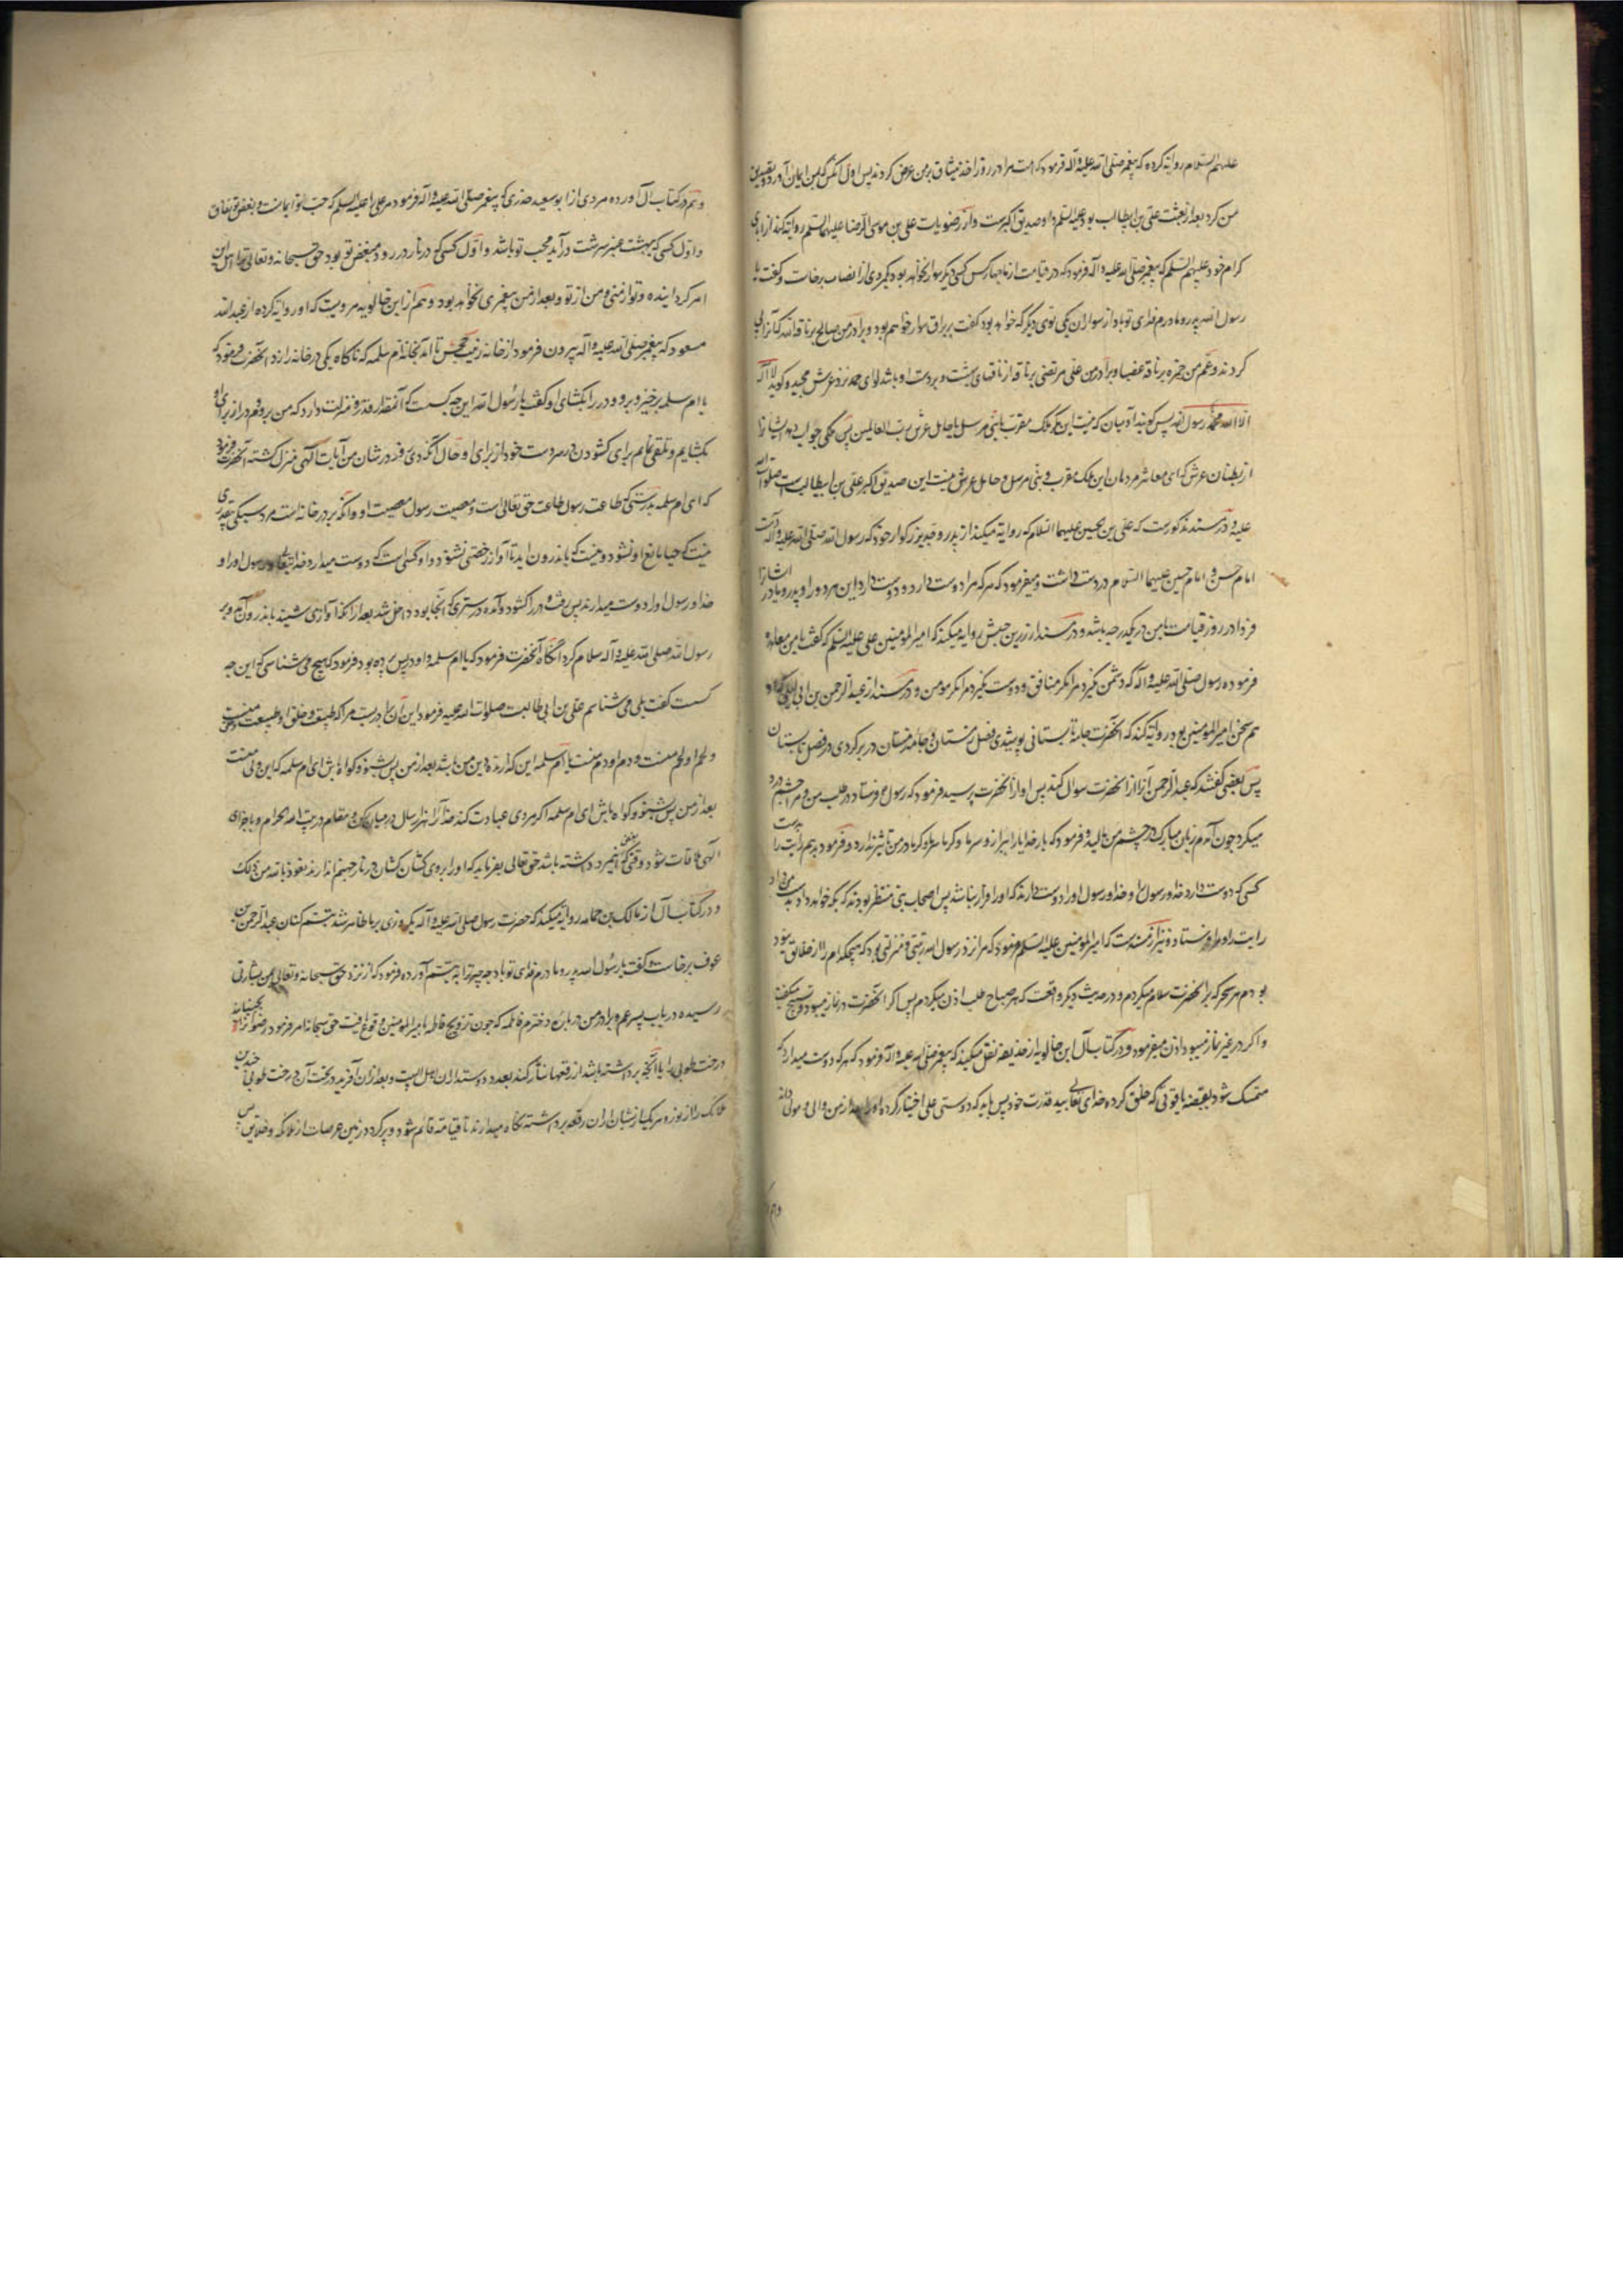 علیهم السلام روایة کرده که پیغمبر صلی الله علیه و آله فرمود که امت مرا در روز اخذ میثاق بر من عرض کردند پس اول آنکس که بمن ایمان آورد و تصدیق
من کرد بعد از بعثت علی بن ابیطالب بود علیه السلم و او صدیق اکبرست و از رضویات علی بن موسی الرضا علیهما السلم روایة کند از آبای
کرام خود علیهم السلم که پیغمبر صلی الله علیه و آله فرمود که در قیامت از ما چهار کس کسی دیگر سوار نخواهد بود که مردی از انصار برخاست و گفت یا
رسول الله پدر و مادرم فدای تو باد از سواران یکی توی دیگر که خواهد بود گفت بر براق سوار خواهم بود و برادر من صالح بر ناقة الله که آنرا پی
کردند و عم من حمزه بر ناقه عضبا و برادر من علی مرتضی بر ناقه از ناقهای بهشت و بر دست او باشد لوای حمد نزد عرش مجید و گوید لا اله
الا الله محمد رسول الله پس گویند آدمیان که نیست این مگر ملک مقرب یا نبی مرسل یا حامل عرش رب العالمین پس ملکی جواب دهد ایشانرا
از بطنان عرش که ای معاشر مردمان این ملک مقرب و نبی مرسل و حامل عرش نیست این صدیق اکبر علی بن ابیطالب است صلوات الله
علیه و در مسند مذکورست که علی بن حسین علیهما السلام که روایة میکند از پدر و جد بزرگوار خود که رسول الله صلی الله علیه و آله دست
امام حسن و امام حسین علیهما السلام در دست داشت و میفرمود که هر که مرا دوست دارد و دوست دارد این هر دو را و پدر و مادر ایشانرا
فردا در روز قیامت با من در یکدرجه باشد و در مسند از زر بن حبیش روایه میکند که امیر المومنین علی علیه السلم که گفت با من معاهده
فرموده رسول صلی الله علیه و آله که دشمن نگیرد مرا مگر منافق و دوست نگیرد مرا مگر مومن و در مسند از عبد الرحمن بن ابی لیلی که او
هم سخن امیر المومنین بود روایة کند که آنحضرت جامه تابستانی پوشیدی فصل زمستان و جامه زمستان در بر کردی در فصل تابستان
پس بعضی گفتند که عبد الرحمن آنرا از آنحضرت سوال کند پس او از آنحضرت پرسید فرمود که رسول ص فرستاد در طلب من و مرا چشم درد
میکرد چون آمدم زبان مبارک در چشم من مالید و فرمود که بار خدایا ببر از و سرما و گرما سرما و گرما در من تاثیر ندارد و فرمود بدهم رایت را بدست
کسی که دوست دارد خدا و رسول را و خدا و رسول او را دوست دارند که او را فرار نباشد پس اصحاب بنی منتظر بودند که بکه خواهد داد بدست من داد
رایت را و مرا فرستاد و نیز از مسندست که امیر المومنین علیه السلم فرمود که مرا نزد رسول الله رتبتی و منزلتی بود که هیچکدام را از خلایق نبود
بودم هر سحر که بر آنحضرت سلام میکردم و در حدیث دیگر واقعست که هر صباح طلب اذن میکردم پس اگر آنحضرت در نماز میبود تسبیح میگفت
و اگر در غیر نماز میبود اذن میفرمود و در کتاب آل ابن خالویه از حذیفه نقل میکند که پیغمبر صلی الله علیه و آله فرمود که هر که دوست میدارد که
متمسک شود بقصبه یاقوتی که خلق کرده خدای تعالی بید قدرت خود پس باید که دوستی علی اختیار کرده او را بعد از من والی و مولی داند
و هم در کتاب آل آورده مردی از ابو سعید خدری که پیغمبر صلی الله علیه و آله فرمود مر علی را علیه السلم که حب تو ایمانست و بغض تو نفاق
و اول کسی که ببهشت عنبر سرشت درآید محب تو باشد و اول کسی که در نار در رود مبغض تو بود حق سبحانه و تعالی ترا اهل این
امر گردانیده و تو از منی و من از تو و بعد از من پیغمبری نخواهد بود و هم از ابن خالویه مرویست که او روایة کرده از عبد الله
مسعود که پیغمبر صلی الله علیه و آله بیرون فرمود از خانه زینب جحش تا آمد بخانه ام سلمه که ناگاه یکی در خانه را زد آنحضرت فرمود که
یا ام سلمه برخیز و برو و در را بگشای او گفت یا رسول الله این چه کسست که آنمقدار قدر و منزلت دارد که من بروم و در از برای او
بگشایم و تلقی نمایم برای گشودن در بدست خود از برای او و حال آنکه دی روز در شان من آیات الهی منزل گشته آنحضرت فرمود
که ای ام سلمه بدرستی که طاعت رسول طاعت حق تعالی است و معصیت رسول معصیت او و آنکه بر در خانه است مرد سبکی بیقدری
نیست که حیا مانع او نشود و نیست که باندرون آید تا آواز خفی نشنود و او کسی است که دوست میدارد خدایتعالی و رسول او را و
خدا و رسول او را دوست میدارند پس رفت و در را گشود و آمده در ستری که آنجا بود داخل شد بعد از آنکه آوازی نشنید باندرون آمد و بر
رسول الله صلی الله علیه و آله سلام کرد آنگاه آنحضرت فرمود که یا ام سلمه و او در پس پرده بود فرمود که هیچ می شناسی که این چه
کسست گفت بلی می شناسم علی بن ابی طالبست صلوات الله علیه فرمود این آن تربیت مرا که طبیعت و خلق او طبیعت منست
و لحم او لحم منست و دم او دم منست یا ام سلمه این گذارنده دین من باشد بعد از من پس بشنو و گواه باش ای ام سلمه که این ولی منست
بعد از من پس بشنو و گواه باش ای ام سلمه اگر مردی عبادت کند خدا را هزار سال در میان رکن و مقام در بیت الله الحرام و با جزای
الهی ملاقات شود وقتی که بغض اینمرد داشته باشد حق تعالی بفرماید که او را بروی کشان کشان در نار جهنم اندازند نعوذ بالله من ذلک
و در کتاب آل از مالک بن حمامه روایة میکند که حضرت رسول صلی الله علیه و آله یکروزی بر ما ظاهر شد تبسم کنان عبد الرحمن بن
عوف برخاست و گفت یا رسول الله پدر و مادرم فدای تو باد چه چیز ترا به تبسم آورده فرمود که از نزد حق سبحانه و تعالی بمن بشارتی
رسیده در باب پسر عم و برادر من در باره دخترم فاطمه که چون تزویج فاطمه بامیر المومنین وقوع یافت حق سبحانه امر فرمود رضوان را که بجنباند
درخت طوبی را با آنچه برداشته باشد از رقعها نثار کند بعدد دوستداران اهل البیت و بعد از آن آفریند در تحت آن درخت طوبی چندین
ملائک را از نور و هر یک از ایشان از آن رقعه برداشته نگاه میدارند تا قیامة قائم شود و پر گردد زمین عرصات از ملائکه و خلایق پس